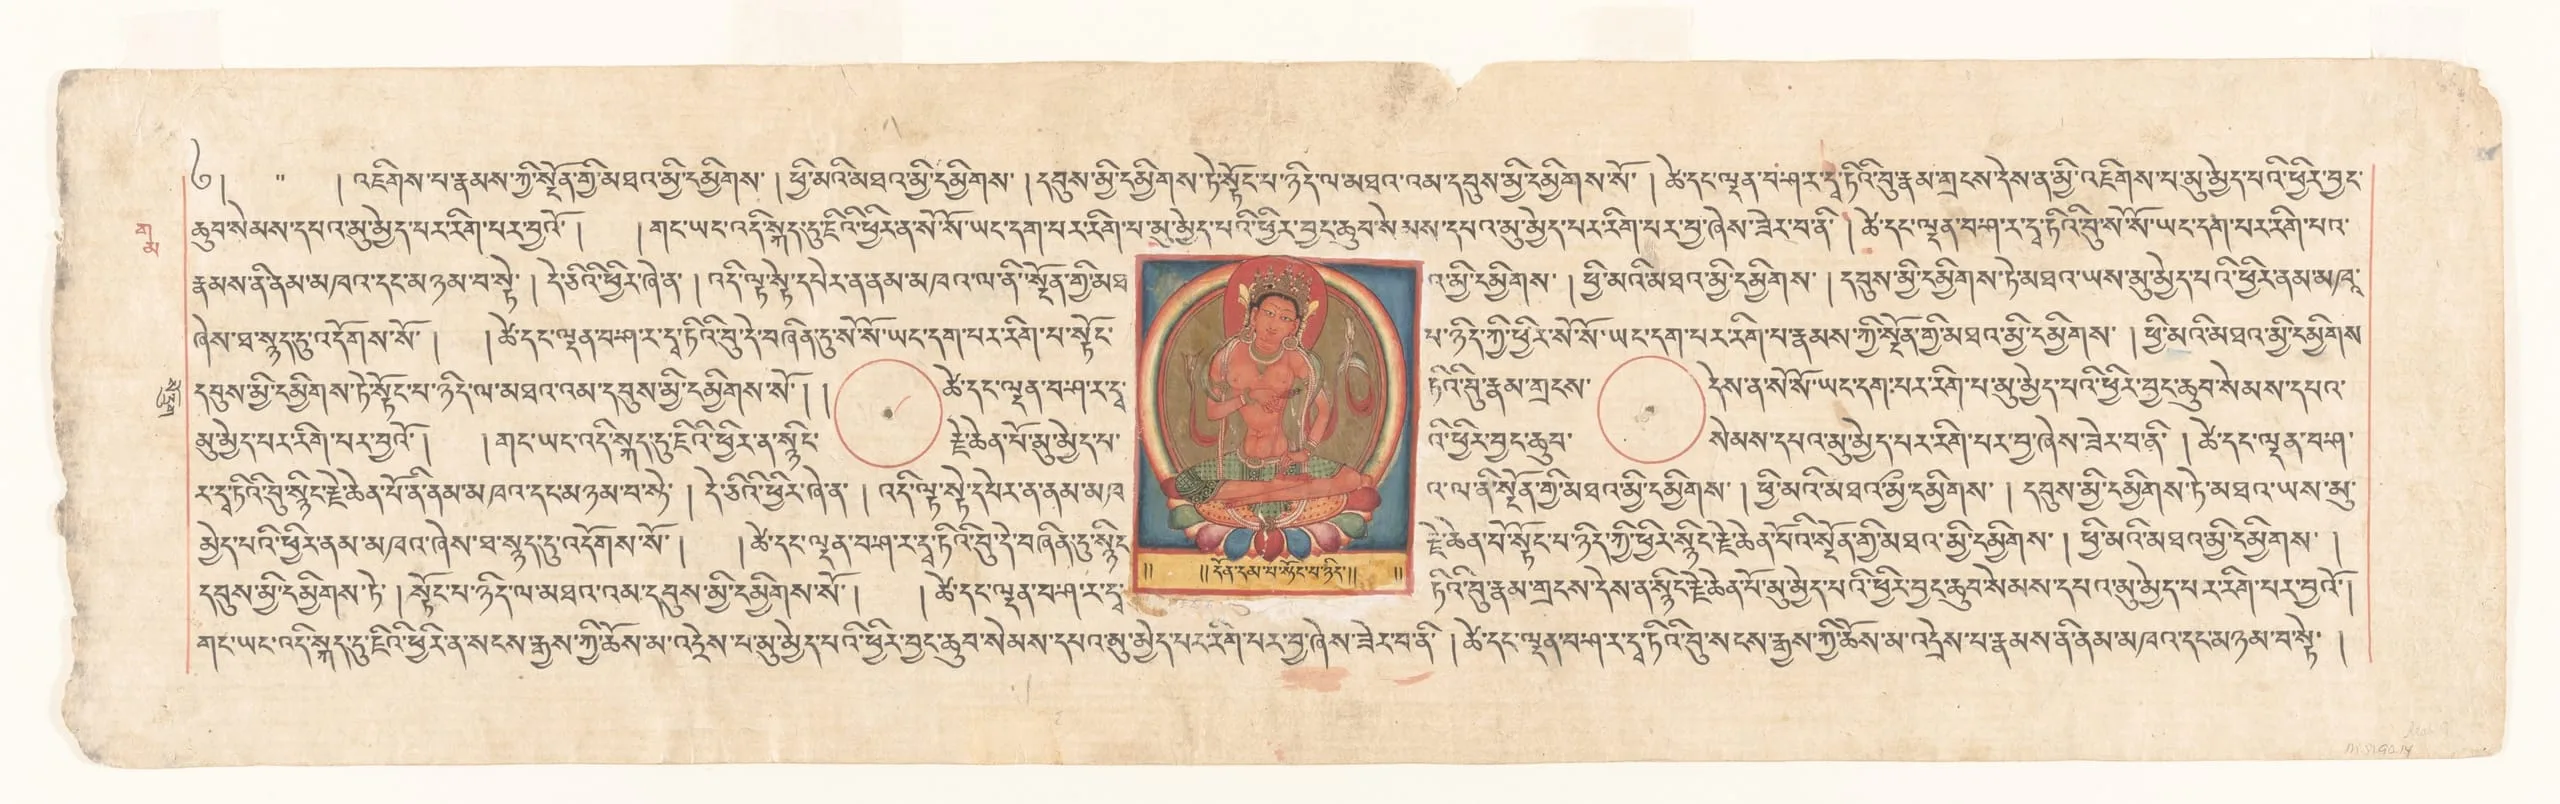 ༄། " །འཇིགས་པ་རྣམས་ཀྱི་སྔོན་གྱི་མཐའ་མྱི་དམྱིགས་ །ཕྱི་མའི་མཐའ་མྱི་དམྱིགས་ །དབུས་མྱི་དམྱིགས་ཏེ་སྟོང་པ་ཉིད་ལ་མཐའ་འམ་དབུས་མྱི་དམྱིགས་སོ་ །ཚེ་དང་ལྡན་བ་ཤ་ར་དྭ་ཏིའི་བུ་རྣམ་གྲངས་དེས་ན་མྱི་འཇིགས་པ་མུ་མྱེད་པའི་ཕྱིར་བྱང་
ཆུབ་སེམས་དཔའ་མུ་མྱེད་པར་རིག་པར་བྱའོ་ ། །གང་ཡང་འདི་སྐད་དུ་ཇིའི་ཕྱིར་ན་སོ་སོ་ཡང་དག་པར་རིག་པ་མུ་མྱེད་པའི་ཕྱིར་བྱང་ཆུབ་སེམས་དཔའ་མུ་མྱེད་པར་རིག་པར་བྱ་ཞེས་ཟེར་བ་ནི་ །ཚེ་དང་ལྡན་བ་ཤ་ར་དྭ་ཏིའི་བུ་སོ་སོ་ཡང་དག་པར་རིག་པའ་
རྣམས་ནི་ནམ་མ་ཁའ་དང་མཉམ་བ་སྟེ་ །དེ་ཅིའི་ཕྱིར་ཞེ་ན་ །འདི་ལྟ་སྟེ་དཔེར་ན་ནམ་མ་ཁའ་ལ་ནི་སྔོན་གྱི་མཐའ་མྱི་དམྱིགས་ །ཕྱི་མའི་མཐའ་མྱི་དམྱིགས་ །དབུས་མྱི་དམྱིགས་ཏེ་མཐའ་ཡས་མུ་མྱེད་པའི་ཕྱིར་ནམ་མ་ཁའ་
ཞེས་ཐ་སྙད་དུ་འདོགས་སོ་ ། །ཚེ་དང་ལྡན་བ་ཤ་ར་དྭ་ཏིའི་བུ་དེ་བཞིན་དུ་སོ་སོ་ཡང་དག་པར་རིག་པ་སྟོང་པ་ཉིད་ཀྱི་ཕྱིར་སོ་སོ་ཡང་དག་པར་རིག་པ་རྣམས་ཀྱི་སྔོན་གྱི་མཐའ་མྱི་དམྱིགས་ །ཕྱི་མའི་མཐའ་མྱི་དམྱིགས
དབུས་མྱི་དམྱིགས་ཏེ་སྟོང་པ་ཉིད་ལ་མཐའ་འམ་དབུས་མྱི་དམྱིགས་སོ་ ། །ཚེ་དང་ལྡན་བ་ཤ་ར་དྭ་ཏིའི་བུ་རྣམ་གྲངས་དེས་ན་སོ་སོ་ཡང་དག་པར་རིག་པ་མུ་མྱེད་པའི་ཕྱིར་བྱང་ཆུབ་སེམས་དཔའ་
མུ་མྱེད་པར་རིག་པར་བྱའོ་ ། །གང་ཡང་འདི་སྐད་དུ་ཇིའི་ཕྱིར་ན་སྙིང་རྗེ་ཆེན་པོ་མུ་མྱེད་པའི་ཕྱིར་བྱང་ཆུབ་སེམས་དཔའ་མུ་མྱེད་པར་རིག་པར་བྱ་ཞེས་ཟེར་བ་ནི་ །ཚེ་དང་ལྡན་བ་ཤ་
ར་དྭ་ཏིའི་བུ་སྙིང་རྗེ་ཆེན་པོ་ནི་ནམ་མ་ཁའ་དང་མཉམ་བ་སྟེ་ །དེ་ཅིའི་ཕྱིར་ཞེ་ན་ །འདི་ལྟ་སྟེ་དཔེར་ན་ནམ་མ་ཁའ་ལ་ནི་སྔོན་གྱི་མཐའ་མྱི་དམྱིགས་ །ཕྱི་མའི་མཐའ་མྱི་དམྱིགས་ །དབུས་མྱི་དམྱིགས་ཏེ་མཐའ་ཡས་མུ་
མྱེད་པའི་ཕྱིར་ནམ་མ་ཁའ་ཞེས་ཐ་སྙད་དུ་འདོགས་སོ་ ། །ཚེ་དང་ལྡན་བ་ཤ་ར་དྭ་ཏིའི་བུ་དེ་བཞིན་དུ་སྙིང་རྗེ་ཆེན་པོ་སྟོང་པ་ཉིད་ཀྱི་ཕྱིར་སྙིང་རྗེ་ཆེན་པོའི་སྔོན་གྱི་མཐའ་མྱི་དམྱིགས་ །ཕྱི་མའི་མཐའ་མྱི་དམྱིགས་ །
༎ ༎དོན་དམ་པ་སྟོང་པ་ཉིད་༎ ༎
དབུས་མྱི་དམྱིགས་ཏེ་ །སྟོང་པ་ཉིད་ལ་མཐའ་འམ་དབུས་མྱི་དམྱིགས་སོ་ ། །ཚེ་དང་ལྡན་བ་ཤ་ར་དྭ་ཏིའི་བུ་རྣམ་གྲངས་དེས་ན་སྙིང་རྗེ་ཆེན་པོ་མུ་མྱེད་པའི་ཕྱིར་བྱང་ཆུབ་སེམས་དཔའ་མུ་མྱེད་པར་རིག་པར་བྱའོ་ །
གང་ཡང་འདི་སྐད་དུ་ཇིའི་ཕྱིར་ན་སངས་རྒྱས་ཀྱི་ཆོས་མ་འདྲེས་པ་མུ་མྱེད་པའི་ཕྱིར་བྱང་ཆུབ་སེམས་དཔའ་མུ་མྱེད་པར་རིག་པར་བྱ་ཞེས་ཟེར་བ་ནི་ །ཚེ་དང་ལྡན་བ་ཤ་ར་དྭ་ཏིའི་བུ་སངས་རྒྱས་ཀྱི་ཆོས་མ་འདྲེས་པ་རྣམས་ནི་ནམ་མ་ཁའ་དང་མཉམ་བ་སྟེ་ །
ག
མ